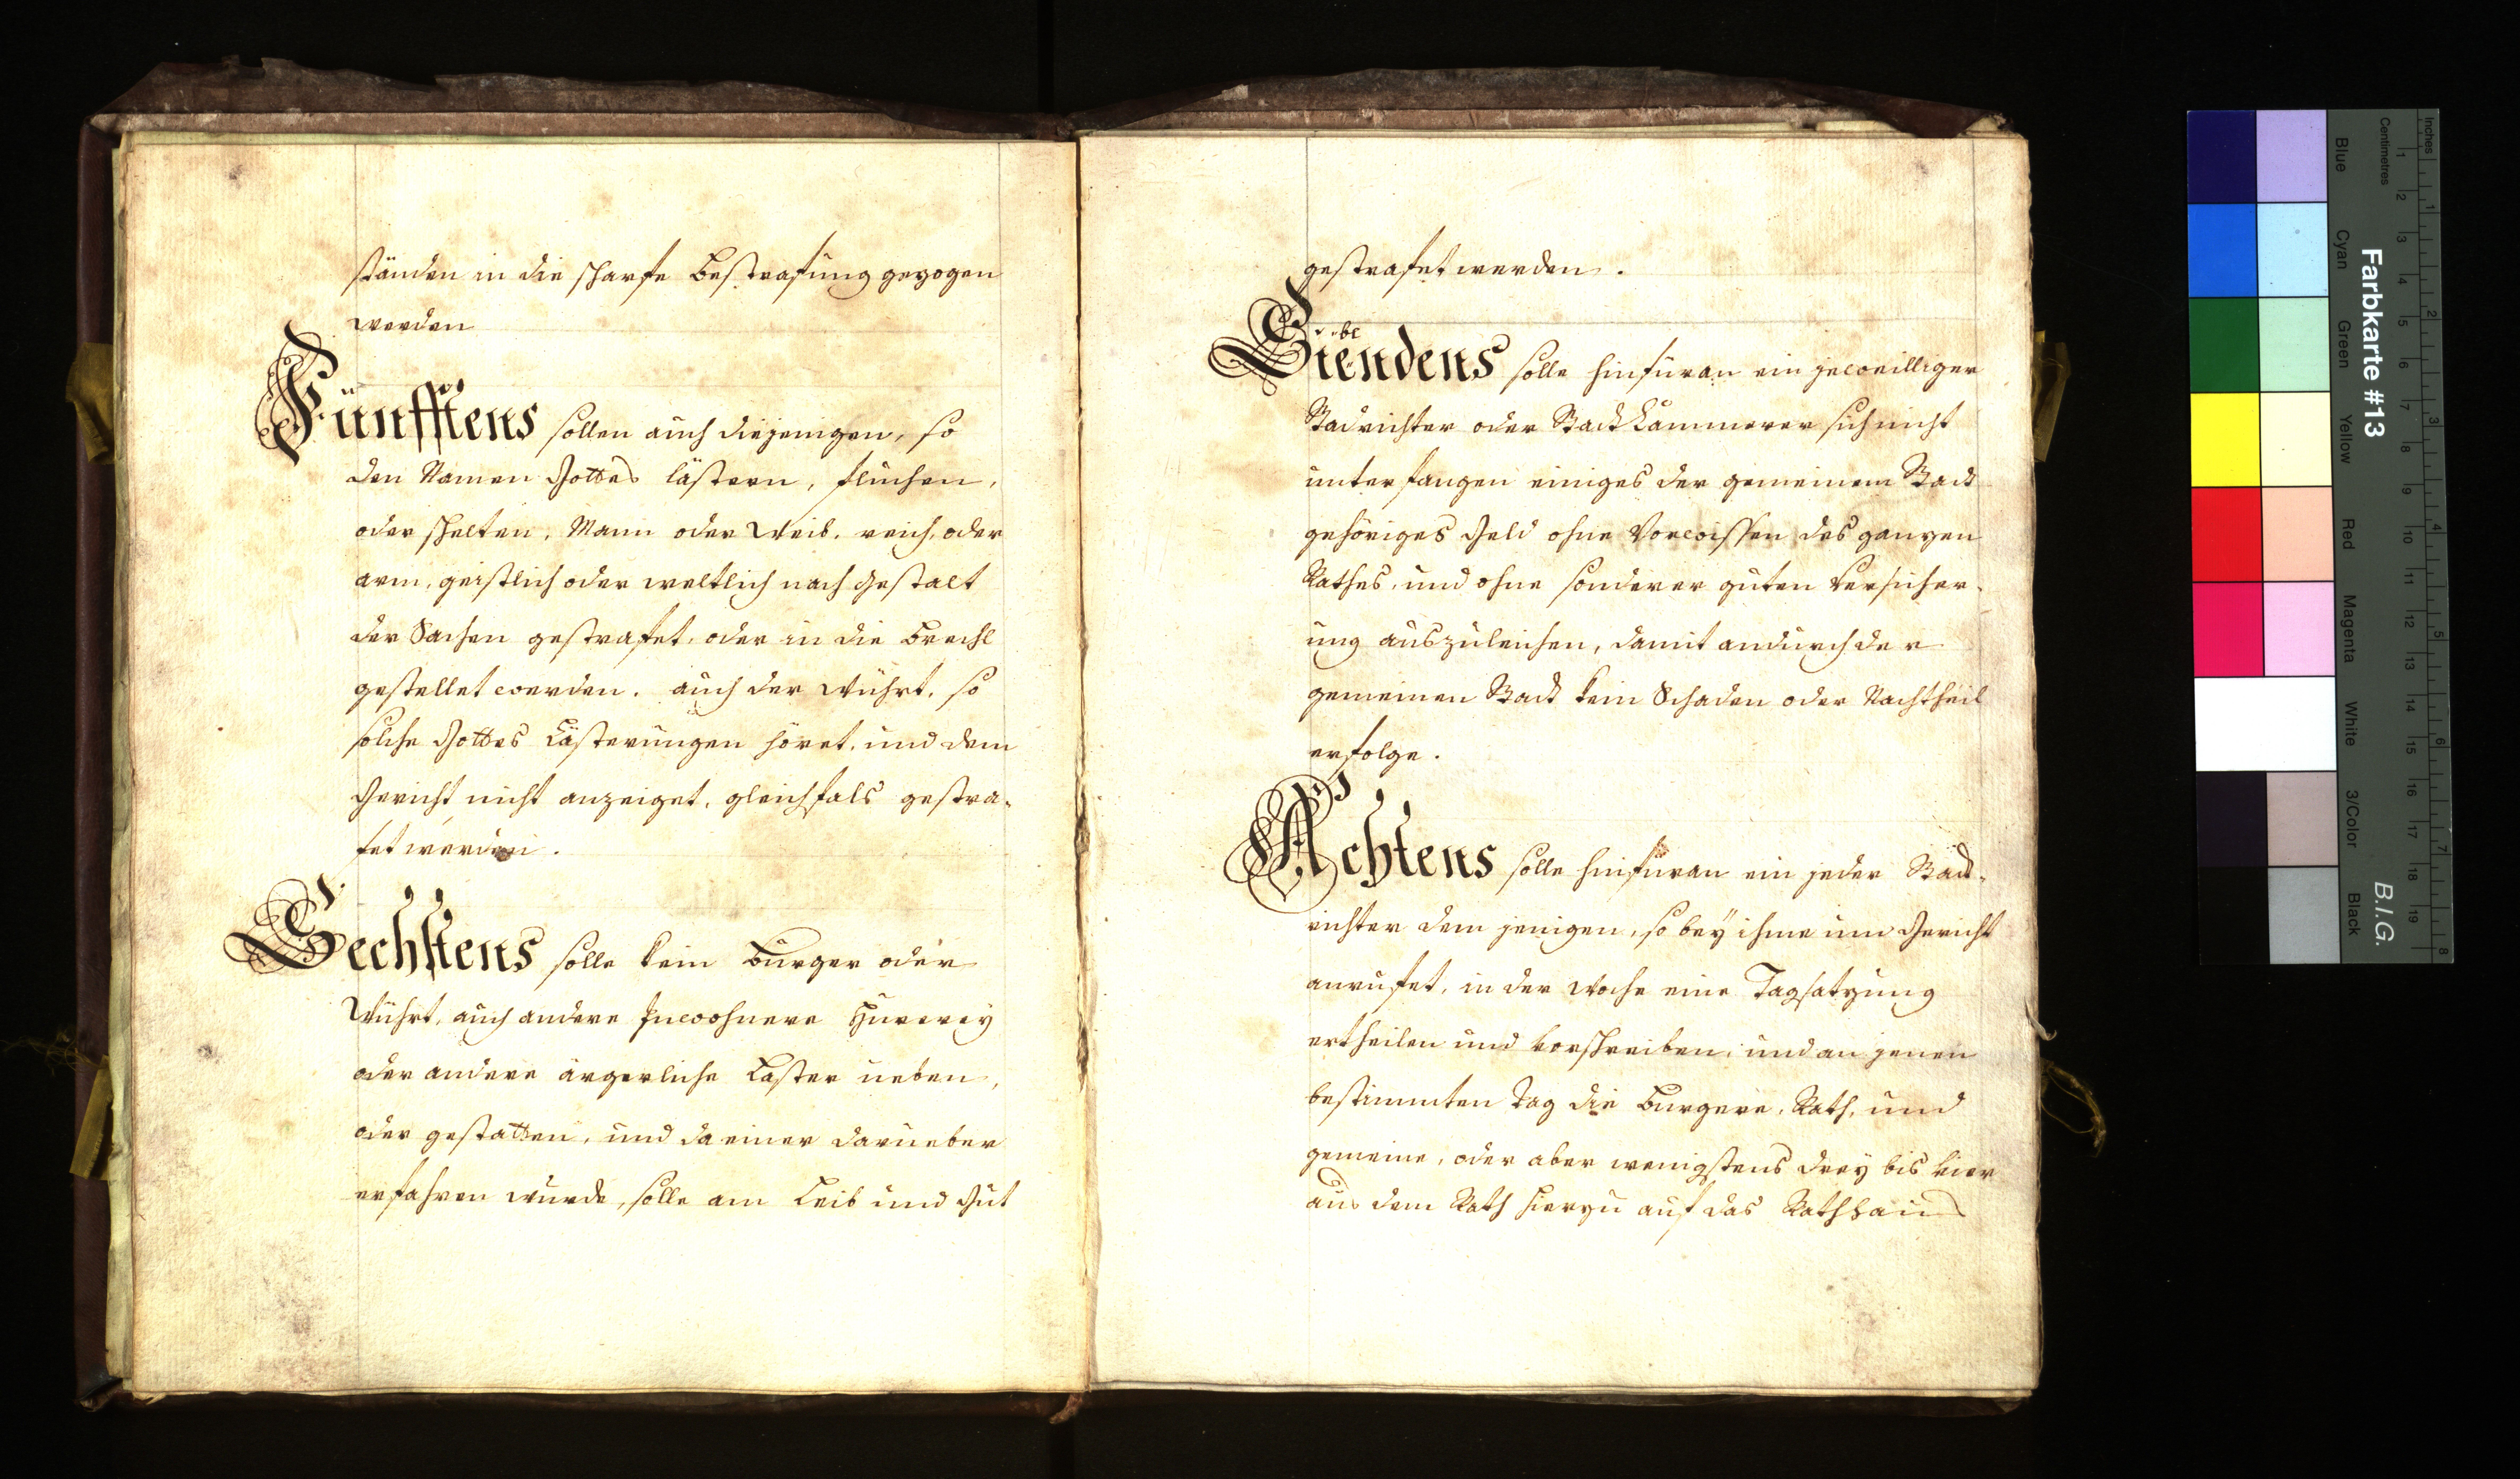 ständen in die scharfe Bestrafung gezogen
werden
Fünfftens sollen auch diejenigen, so
den Namen Gottes lästern, fluchen,
oder schelten, Mann oder Weib, reich, oder
arm, geistlich oder weltlich nach Gestalt
der Sachen gestrafet, oder in die Brechl
gestellet werden. auch der Würth, so
solche Gottes Lästerungen höret, und dem
Gericht nicht anzeiget, gleichfals gestra-
fet werden.
Sechstens solle kein Burger oder
Würth, auch andere Inwohnere Hurerey
oder andere ärgerliche Laster ueben,
oder gestatten, und da einer darueber
erfahren wurde, solle am Leib und Gut
gestrafet werden.
Siebendens solle hinfüran ein jeweilliger
Stadrichter oder Stadt Kammerer sich nicht
unterfangen einiges der gemeinem Stadt
gehöriges Geld ohne Vorwissen des ganzen
Rathes, und ohne sonderer guten Versicher-
ung auszuleichen, damit andurch der
gemeinen Stadt kein Schaden oder Nachtheil
erfolge.
Achtens solle hinfüran ein jeder Stadt-
richter dem jenigen, so beÿ ihme um Gericht
anrufet, in der Woche eine Tagsatzung
ertheilen und vorschreiben, und an jenen
bestimmten Tag die Burgere, Rath, und
gemeine, oder aber wenigstens dreÿ bis vier
aus dem Rath hierzu auf das Rathhaus
Farbkarte #13
B.I.G.
Inches
Centimetres
Blue
Cyan
Green
Yellow
Red
Magenta
White
3/Color
Black
1 2 3 4 5 6 7 8 9 10 11 12 13 14 15 16 17 18 19
1 2 3 4 5 6 7 8